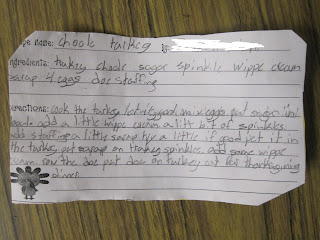 pe name: chook turkey
ngredients: turkey chook sugar spinkle wippe cream
sarap 4 eggs doe staffing
irections: cook the turkey good mix eggs put sugar in
add a little wippe cream a litt bit of spinkls
add staffing a little sarap tyc a little if good put it in
the turkey put sarap on turkey sprinkles add some wippe
cream row the doe put doe on turkey eat for thanksgiving
dinner